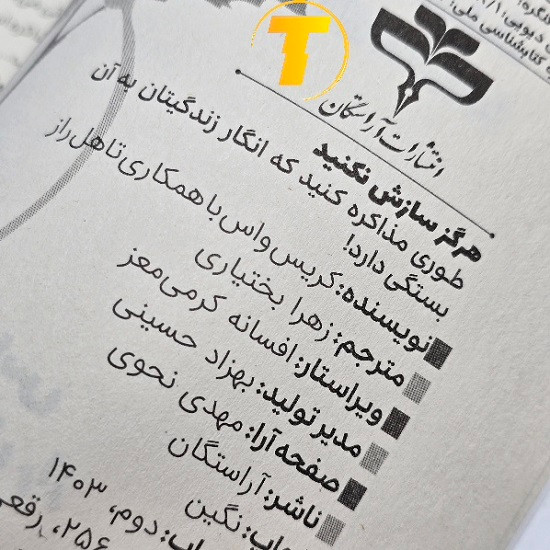 کتابشناسی ملی:
انتشارات آراستگان
هرگز سازش نکنید
طوری مذاکره کنید که انگار زندگیتان به آن
بستگی دارد!
نویسنده: کریس واس با همکاری تاهل راز
مترجم: زهرا بختیاری
ویراستار: افسانه کرمی‌معز
مدیر تولید: بهزاد حسینی
صفحه‌آرا: مهدی نحوی
ناشر: آراستگان
نگین
دوم، ۱۴۰۳
۲۵۶، رقعی